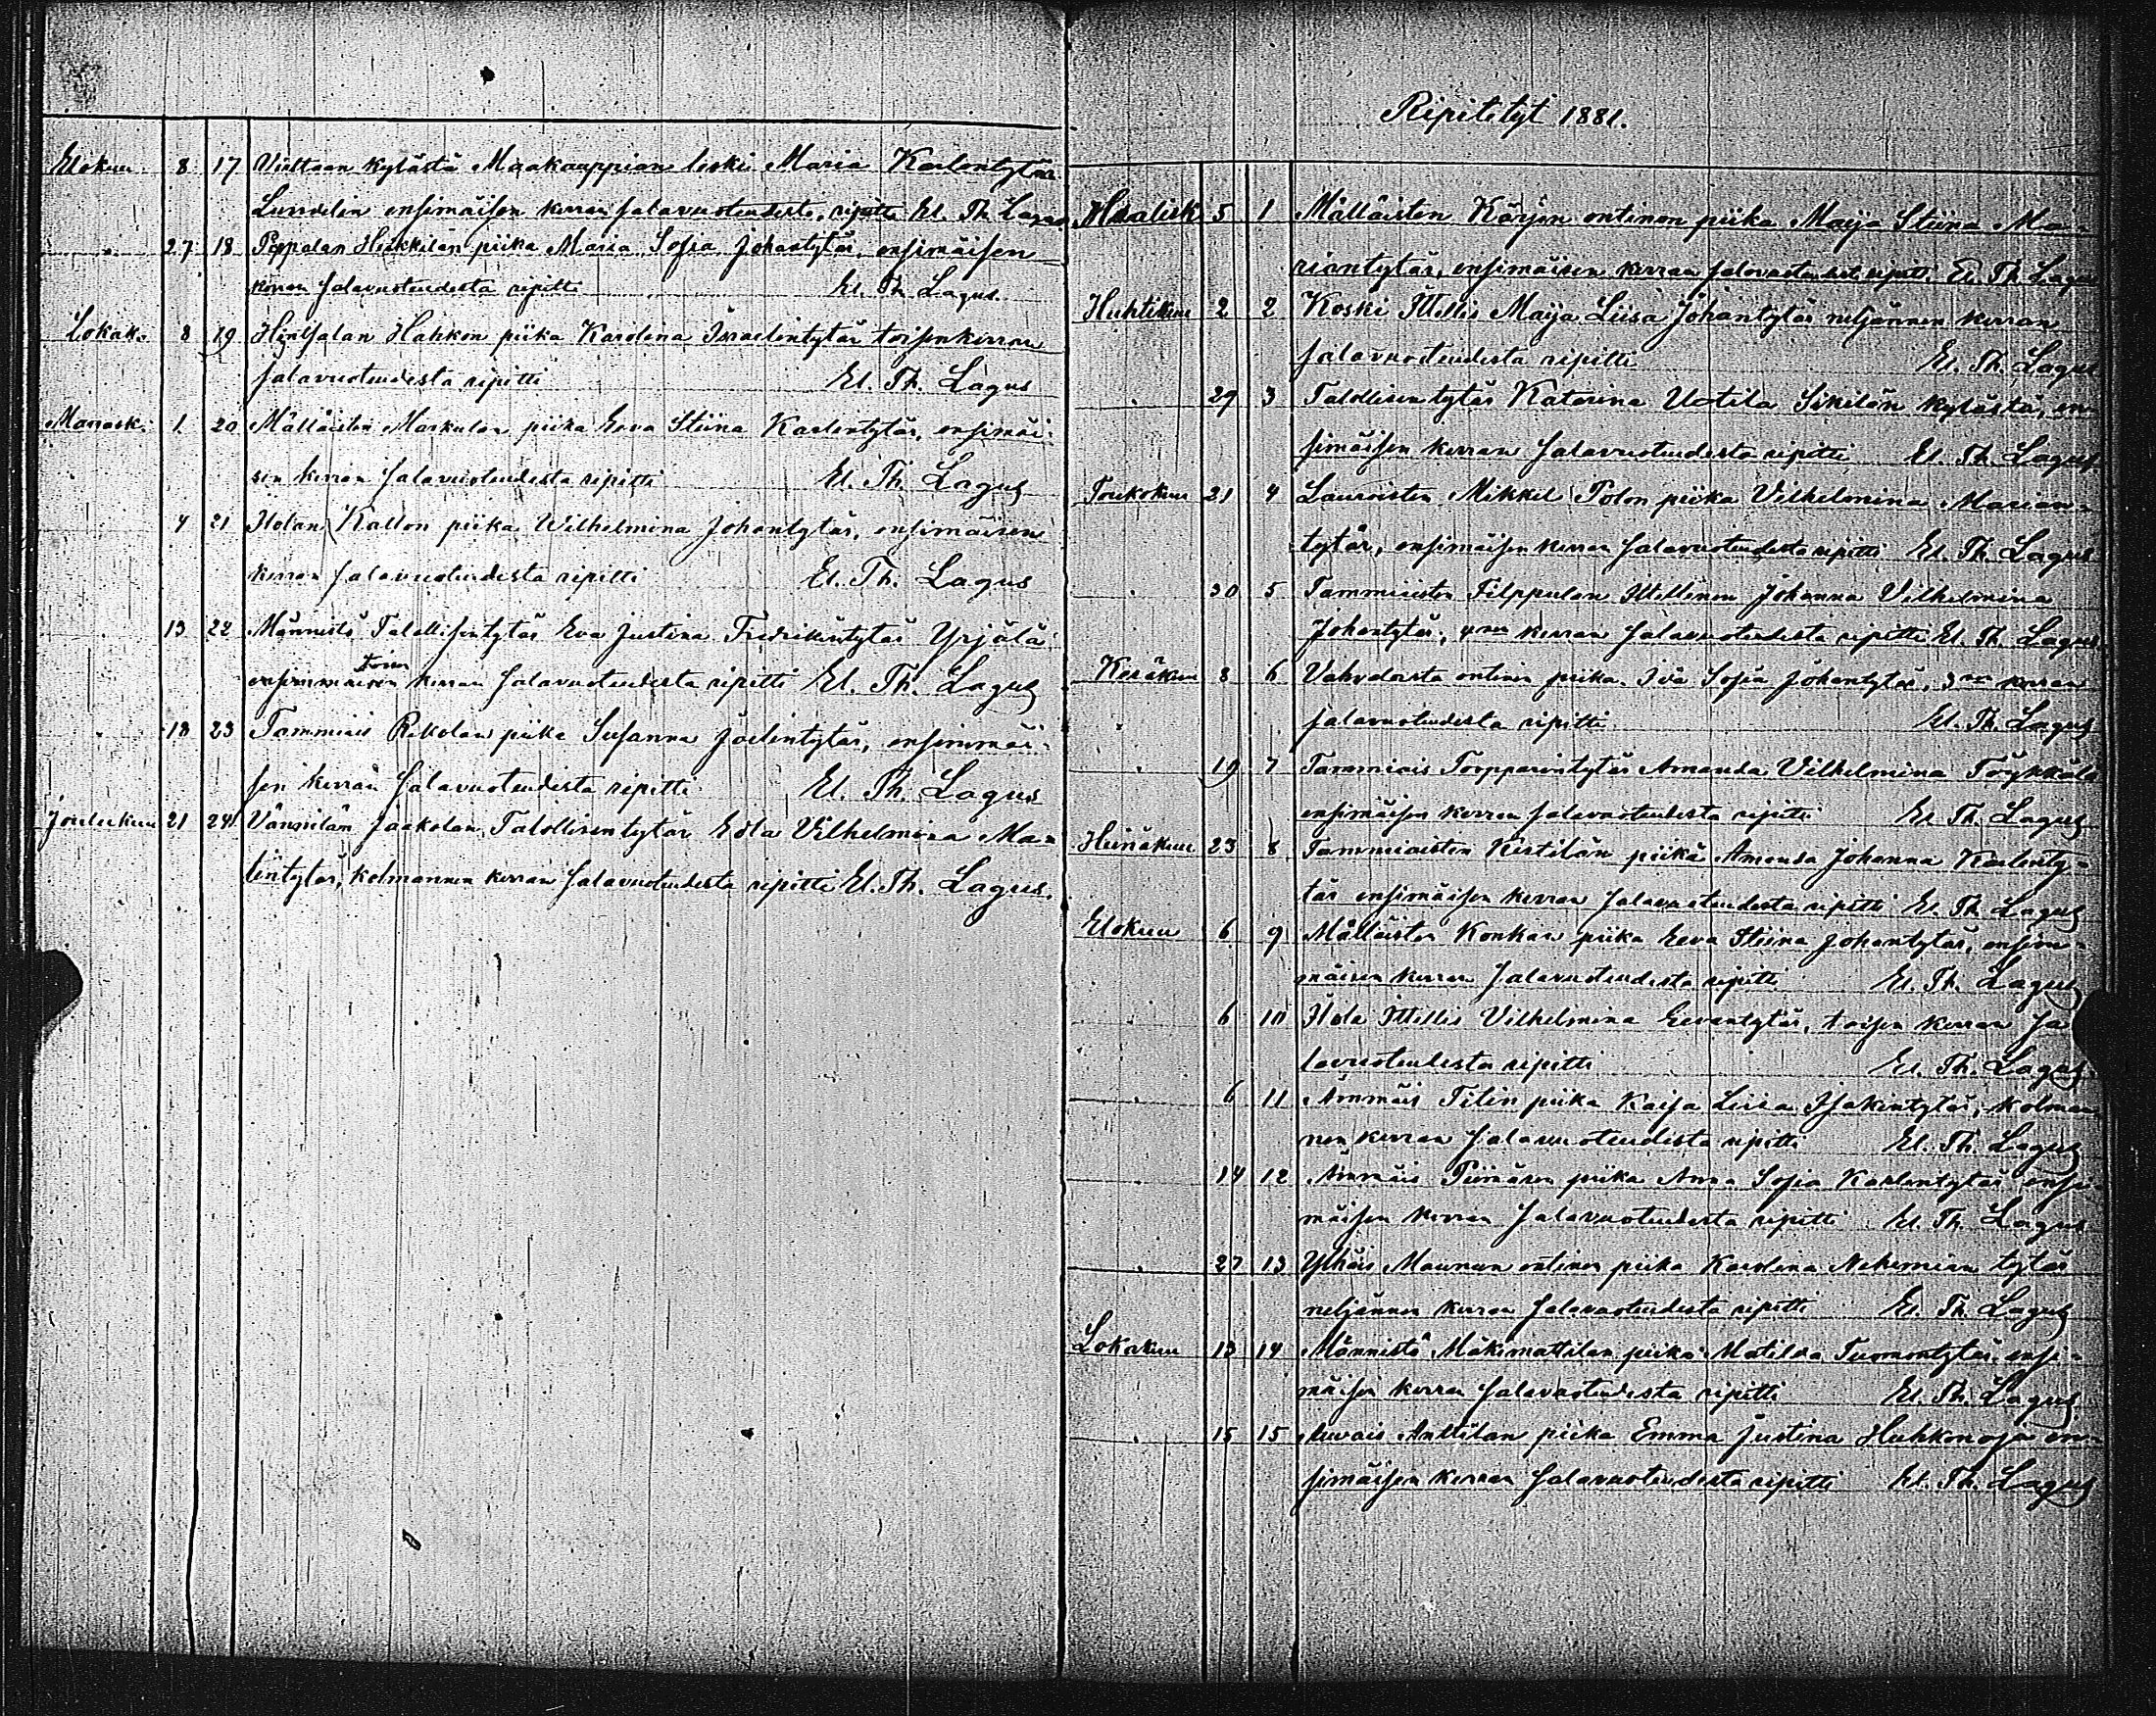 Elokuu 8 17 Viettaan kylästä Maakauppian leski Maria Karlentytär
Lundelin ensimäisen kerran salavuoteudesta, ripitti El. Th. Lagus
" 27 18 Pappalan Heikkilän piika Maria Sofia Johantytär, ensimäisen
kerran salavuoteudesta ripitti El. Th. Lagus.
Lokak. 8 19 Hintsalan Hahkon piika Karolina Israelintytär toisen kerran
salavuoteudesta ripitti El. Th. Lagus
Marrask. 1. 20 Mälläisten Markulan piika Eeva Stiina Karlentytär, ensimäi-
sen kerran salavuoteudesta ripitti El. Th. Lagus
7 21 Ilolan Kallon piika Wilhelmina Johantytär, ensimäisen
kerran salavuoteudesta ripitti El. Th. Lagus
13 22 Männistö Talollisentytär Eva Justina Fredrikintytär Yrjälä
toisen
ensimmäisen kerran salavuoteudesta ripitti El. Th. Lagus
" 18 23 Tammiais Rekolan piika Susanna Joelintytär, ensimmäi-
sen kerran salavuoteudesta ripitti El. Th. Lagus
Joulukuu 21 24 Vännilän Jaakolan Talollisentytär Edla Vilhelmina Ma-
tintytär, kolmannen kerran salavuoteudesta ripitti El. Th. Lagus.
Ripitetyt 1881.
Maalisk 5 1 Mälläisten Körjen entinen piika Maija Stiina Ma-
riantytär, ensimäisen kerran salavuoteudesta ripitti El. Th. Lagus
Huhtikuu 2 2 Koski Itellis Maija Liisa Johantytär neljännen kerran
salavuoteudesta ripitti El. Th. Lagus
" 29 3 Talollisen tytär Katarina Uotila Sikilän kylästä, en-
simäisen kerran salavuoteudesta ripitti El. Th. Lagus
Toukokuu 21 4 Lauroisten Mikkel Polon piika Vilhelmina Marian-
tytär, ensimäisen kerran salavuoteudesta ripitti El. Th. Lagus
" 30 5 Tammiaisten Filppulan Itellinen Johanna Vilhelmina
Johantytär, 4nen kerran salavuoteudesta ripitti El. Th. Lagus
Kesäkuu 8 6 Vahvaloista entinen piika Ida Sofia Johantytär, 3nen kerran
salavuoteudesta ripitti El. Th. Lagus
" 19 7 Tammiais Torpparintytär Amanda Vilhelmina Töykkälä
ensimäisen kerran salavuoteudesta ripitti El. Th. Lagus
Heinäkuu 23 8 Tammiaisten Kertilän piika Amanda Johanna Karlenty-
tär ensimäisen kerran salavuoteudesta ripitti El. Th. Lagus
Elokuu 6 9 Mälläisten Konkan piika Eeva Stiina Johantytär, ensim-
mäisen kerran salavuoteudesta ripitti El. Th. Lagus
" 6 10 Ilola Itellis Vilhelmina Eevantytär, toisen kerran sa
lavuoteudesta ripitti El. Th. Lagus
" 6 11 Ämmäis Titin piika Kaisa Liisa Isakintytär, kolman
nen kerran salavuoteudesta ripitti El. Th. Lagus
" 14 12 Ämmäis Piimäsen piika Anna Sofia Karlentytär ensi-
mäisen kerran salavuoteudesta ripitti El. Th. Lagus
" 27 13 Ylhäis Maunun entinen piika Karolina Nehemian tytär
neljännen kerran salavuoteudesta ripitti El. Th. Lagus
Lokakuu 13 14 Männistö Mäkimattilan piika Matilda Tuomontytär, ensi-
mäisen kerran salavuoteudesta ripitti El. Th. Lagus
" 15 15 Auvais Anttilan piika Emma Justina Huhkonoja en-
simäisen kerran salavuoteudesta ripitti El. Th. Lagus